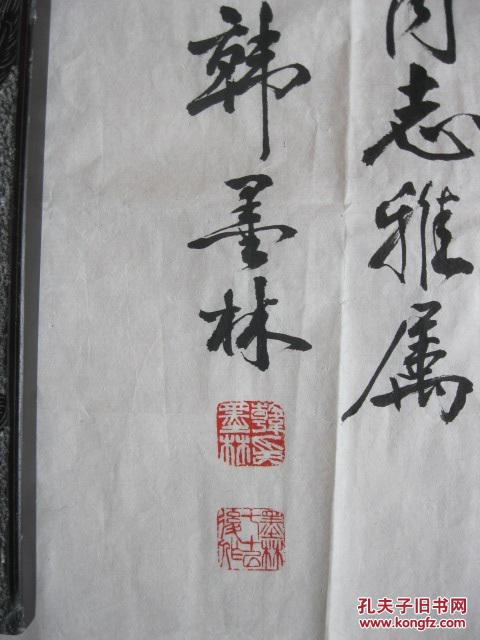 同志雅属
韩墨林
韓印墨林
墨林
後作
孔夫子旧书网
www.kongfz.com